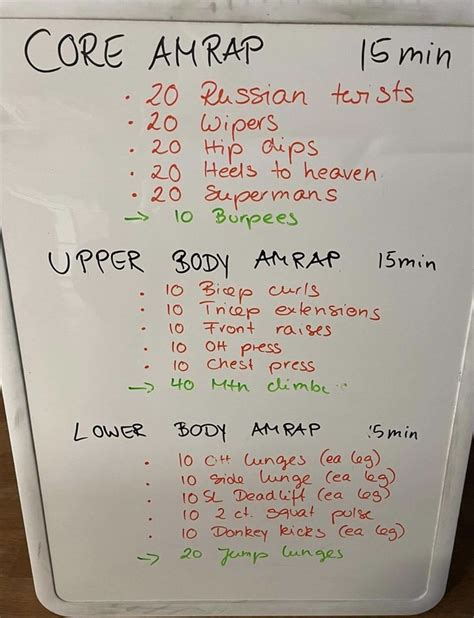 CORE AMRAP 15 min
• 20 Russian twists
• 20 Wipers
• 20 Hip dips
• 20 Heels to heaven
• 20 Supermans
→ 10 Burpees
UPPER BODY AMRAP 15min
• 10 Bicep curls
• 10 Tricep extensions
• 10 Front raises
• 10 OH press
• 10 Chest press
→ 40 Mtn climbe
LOWER BODY AMRAP 5min
• 10 OH lunges (ea leg)
• 10 Side lunge (ea leg)
• 10 SL Deadlift (ea leg)
• 10 2 ct. squat pulse
• 10 Donkey kicks (ea leg)
→ 20 Jump lunges